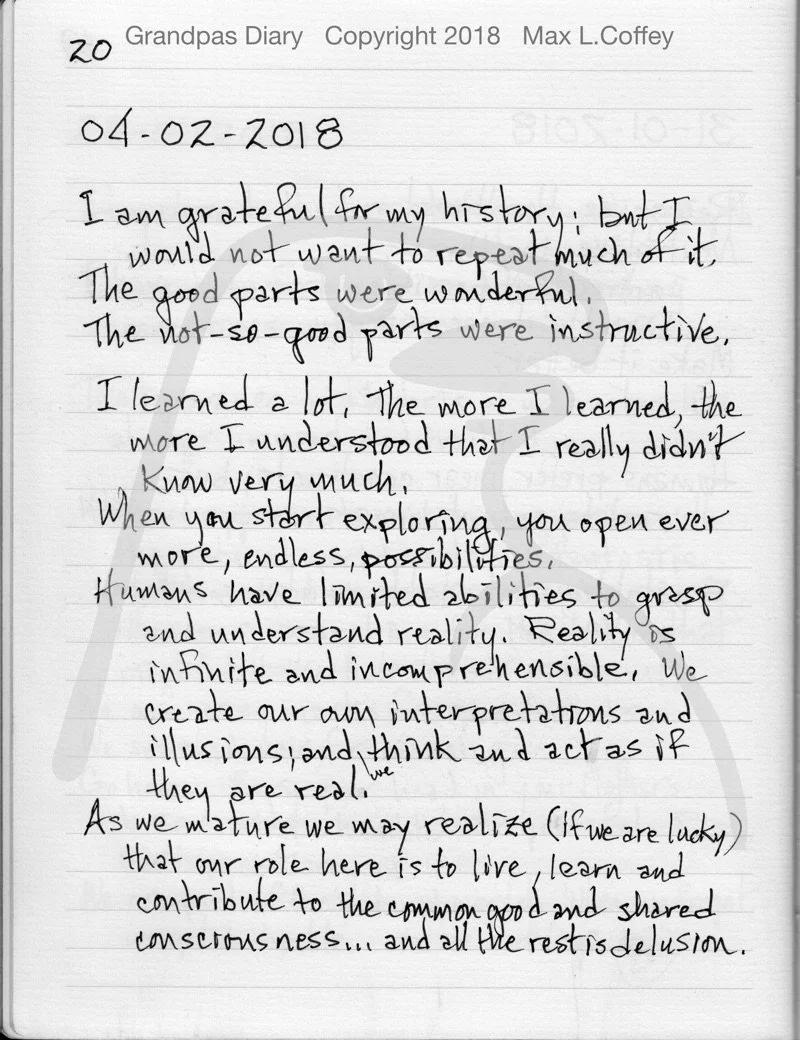 Grandpas Diary Copyright 2018 Max L.Coffey
20
04-02-2018
I am grateful for my history; but I
would not want to repeat much of it.
The good parts were wonderful.
The not-so-good parts were instructive.
I learned a lot. The more I learned, the
more I understood that I really didn't
know very much.
When you start exploring, you open ever
more, endless, possibilities.
Humans have limited abilities to grasp
and understand reality. Reality is
infinite and incomprehensible. We
create our own interpretations and
illusions; and we think and act as if
they are real.
As we mature we may realize (if we are lucky)
that our role here is to live, learn and
contribute to the common good and shared
consciousness... and all the rest is delusion.